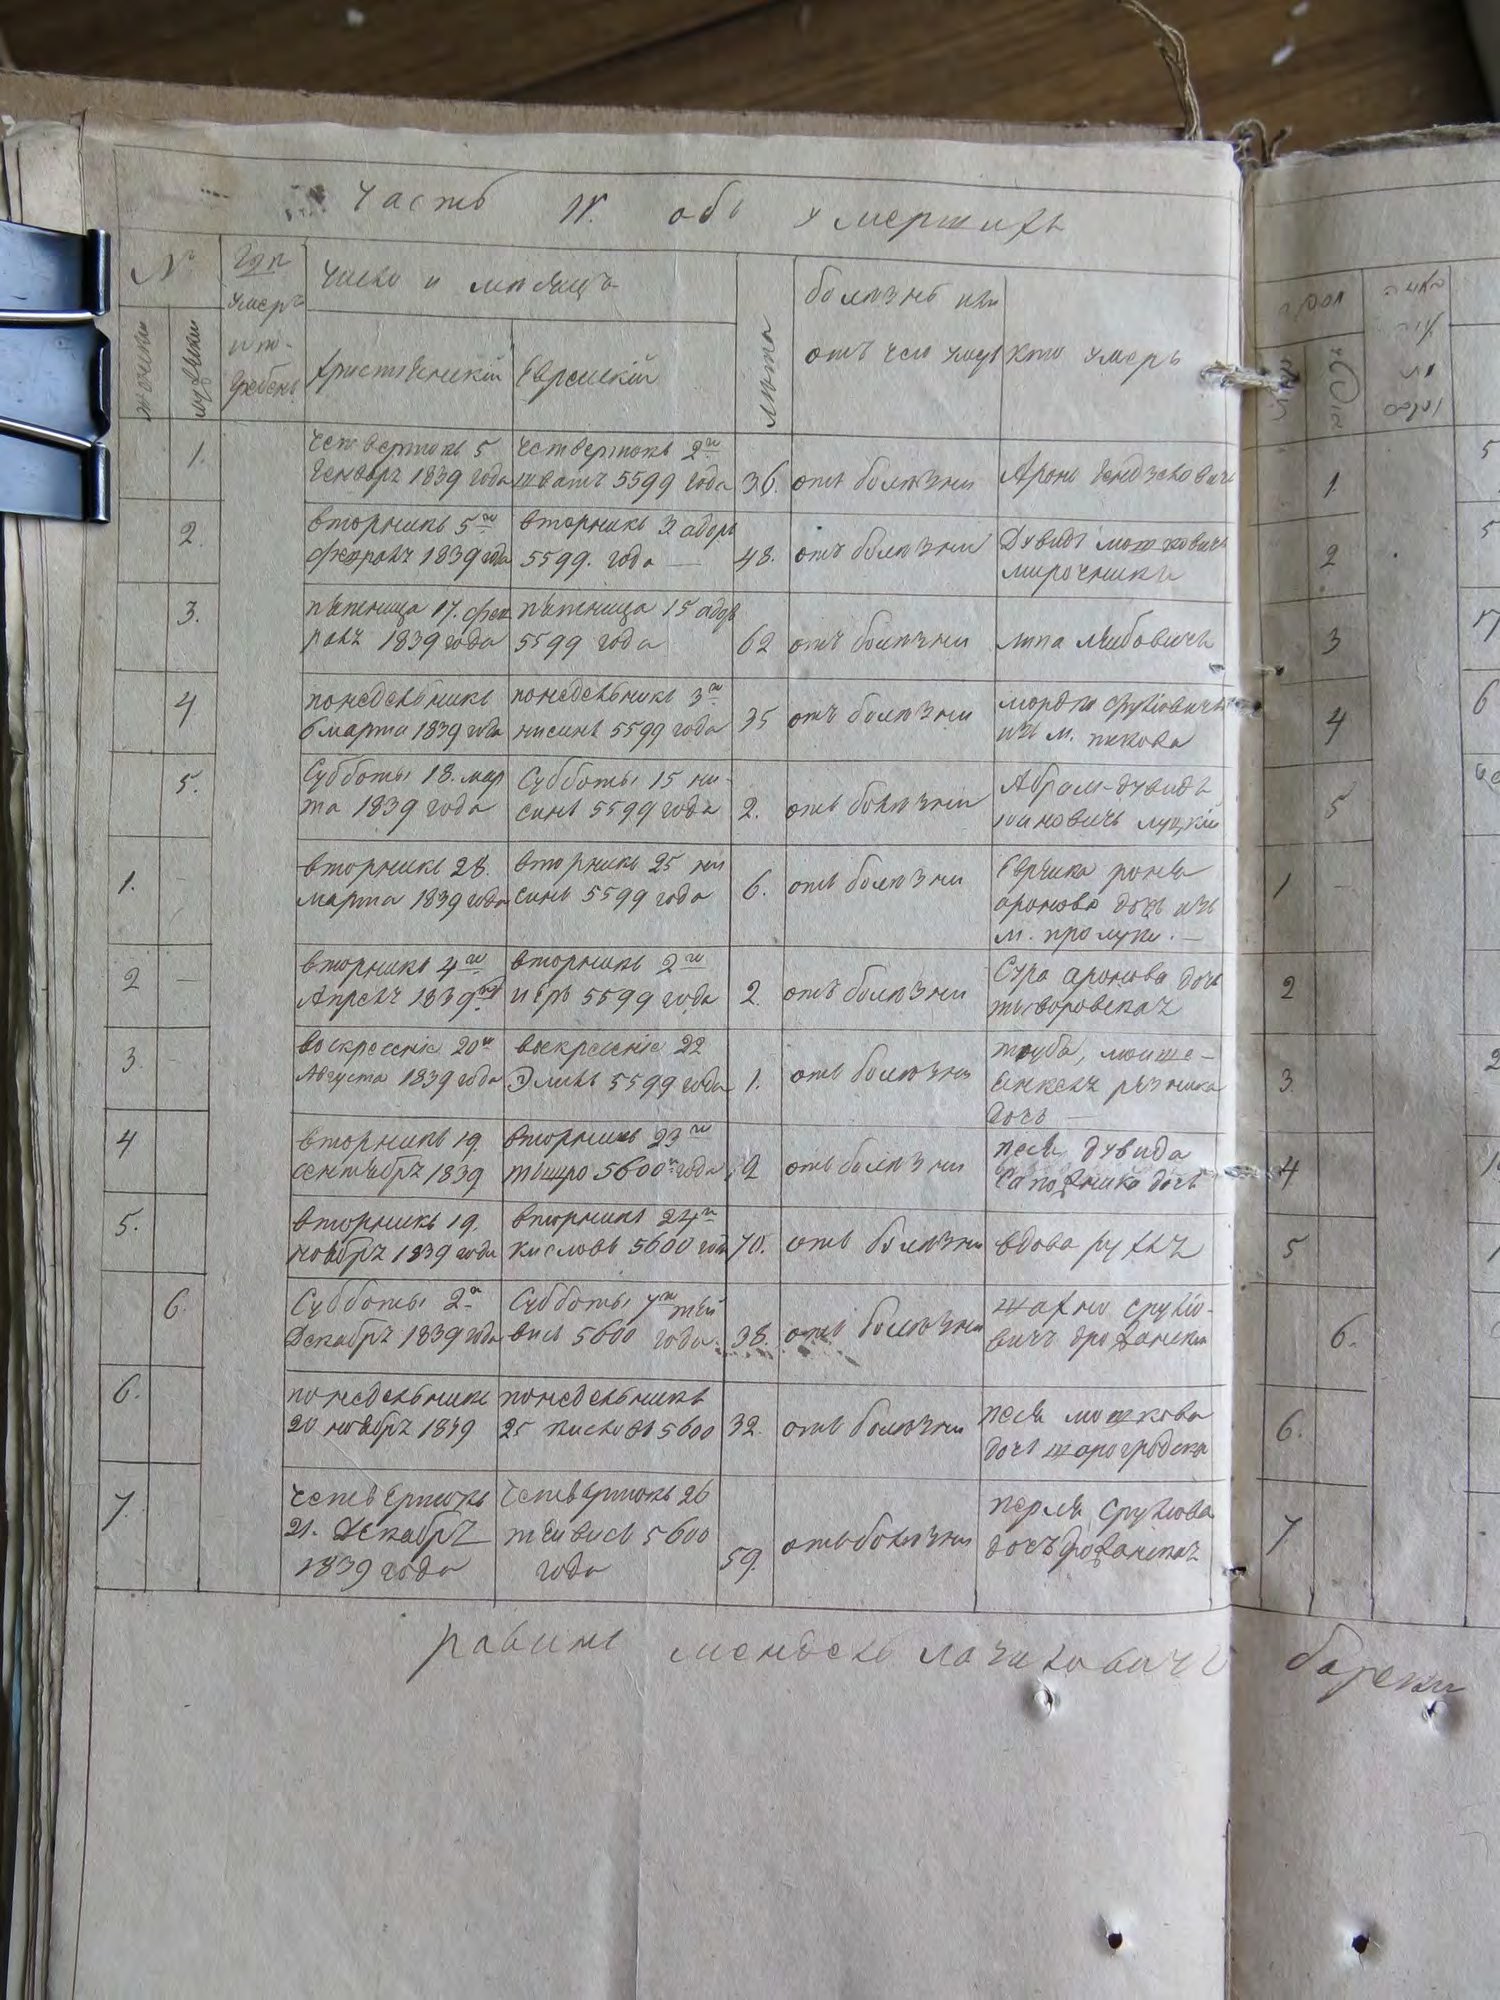 Часть IV. объ умершихъ
№
Где умеръ и по-гребенъ
число и месяцъ
болезнь или
женски
мужески
христіянскій
Еврейскій
лета
отъ чего умеръ
кто умеръ
1.
четвертокъ 5 Генваря 1839 года
четвертокъ 2го шватъ 5599 года
36.
отъ болезни
Аронъ
2.
вторникъ 5го февраля 1839 года
вторникъ 3 адаръ 5599. года —
48.
отъ болезни
Дувидъ мошковичъ мирочникъ
3.
пятница 17. фев раля 1839 года
пятница 15 адаръ 5599 года
62
отъ болезни
липа лейбовичъ
4
понедельникъ 6 марта 1839 года
понедельникъ 3го нисанъ 5599 года
35
отъ болезни
мордко срулiовичъ изъ м. пикова
5.
Субботы 18. мар та 1839 года
Субботы 15 ни- санъ 5599 года
2.
отъ болезни
Абрам-дувидъ луцкій
1.
вторникъ 28. марта 1839 года
вторникъ 25 ни санъ 5599 года
6.
отъ болезни
Еврейка роня аронова дочь изъ м. прилуки. —
2
вторникъ 4го Апреля 1839 год
вторникъ 2го иеръ 5599 года
2.
отъ болезни
Сура аронова дочь тыворовская
3.
воскресеніе 20го Августа 1839 года
воскресеніе 22 Элилъ 5599 года
1.
отъ болезни
тауба, мошке- янкеля резника дочь —
4
вторникъ 19. сентября 1839
вторникъ 23го тишро 5600го года
2
отъ болезни
песя дувида сапожника дочь
5.
вторникъ 19. ноября 1839 года
вторникъ 24го кисловъ 5600 года
70.
отъ болезни
вдова рухля
6.
Субботы 2го Декабря 1839 года
Субботы 7го тей висъ 5600 года.
38.
отъ болезни
шахно срулiо- вичъ дрожанскій
6.
понедельникъ 20 ноября 1839
понедельникъ 25 кисловъ 5600
32.
отъ болезни
песя мошкова дочь шарогродска
7.
четвертокъ 21. Декабря 1839 года
четвертокъ 26 тейвисъ 5600 года
59.
отъ болезни
перля срулiова дочь дрожанская
равинъ мендель
1.
2
3
4
5
1
2
3.
4
5
6.
6.
7